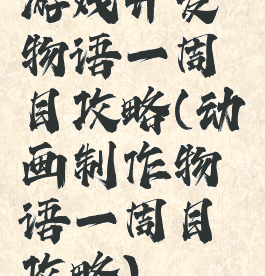 游戏开发
物语一周
目攻略(动
画制作物
语一周目
攻略)